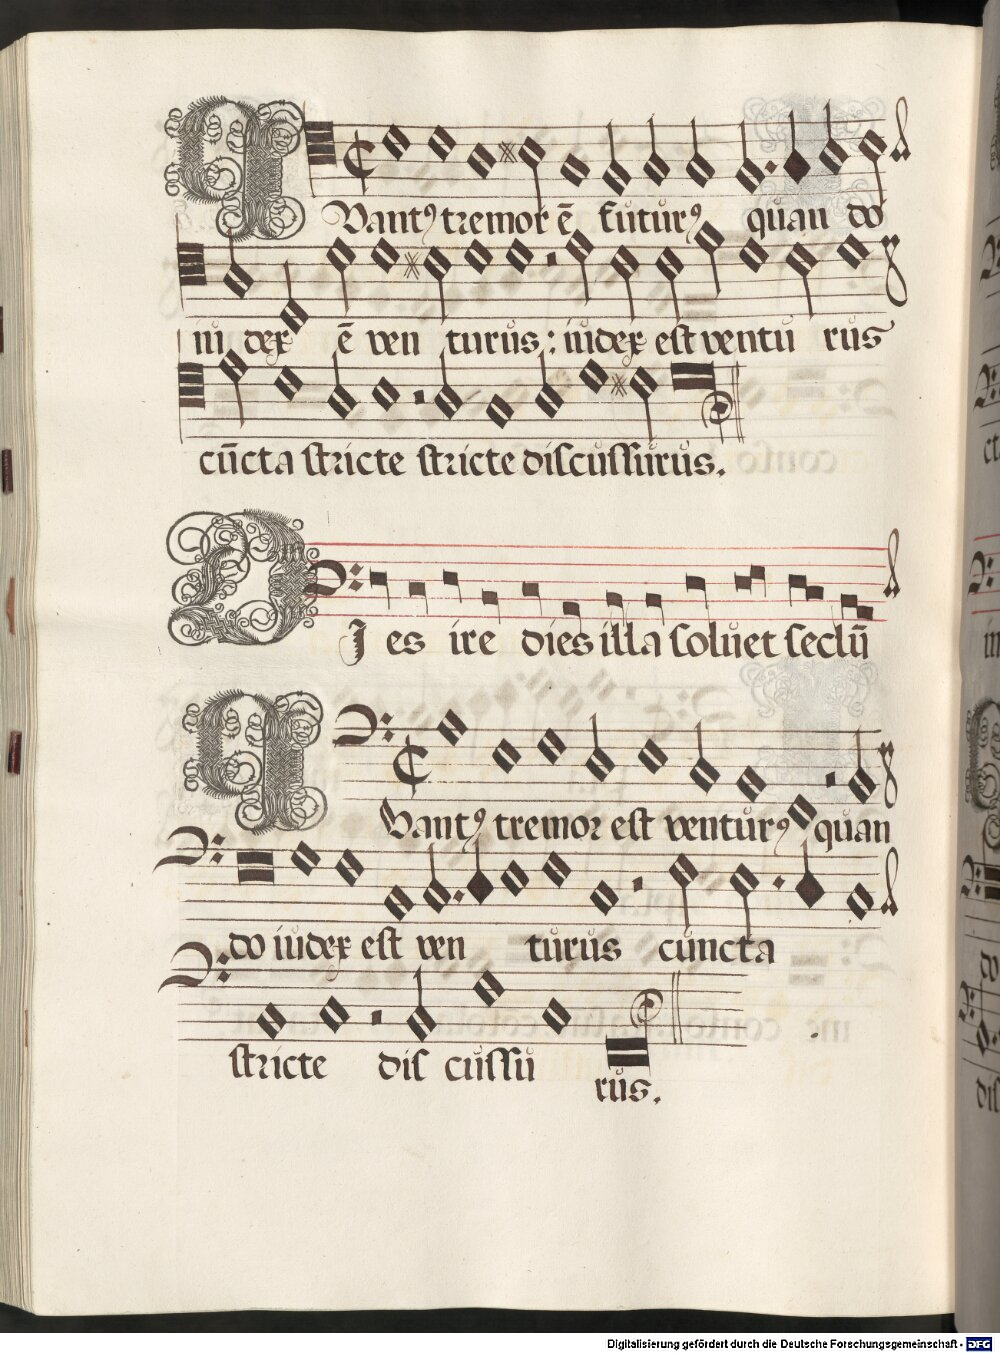 Quantꝰ tremor ē futurꝰ quan do
iu dex ē ven turus: iudex est ventu rus
cūcta stricte stricte discussurus.
DJ es ire dies illa soluet seclū
Quantꝰ tremor est venturꝰ quan
do iudex est ven turus cuncta
stricte dis cussu rus.
Digitalisierung gefördert durch die Deutsche Forschungsgemeinschaft - DFG